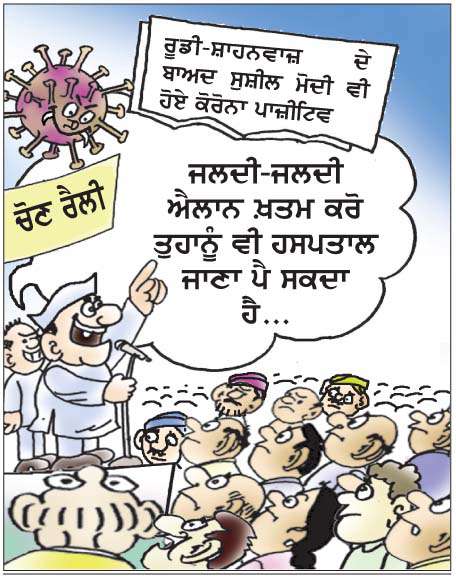 ਰੂਡੀ-ਸ਼ਾਹਨਵਾਜ਼ ਦੇ
ਬਾਅਦ ਸੁਸ਼ੀਲ ਮੋਦੀ ਵੀ
ਹੋਏ ਕੋਰੋਨਾ ਪਾਜ਼ੀਟਿਵ
ਚੋਣ ਰੈਲੀ
ਜਲਦੀ-ਜਲਦੀ
ਐਲਾਨ ਖ਼ਤਮ ਕਰੋ
ਤੁਹਾਨੂੰ ਵੀ ਹਸਪਤਾਲ
ਜਾਣਾ ਪੈ ਸਕਦਾ
ਹੈ...